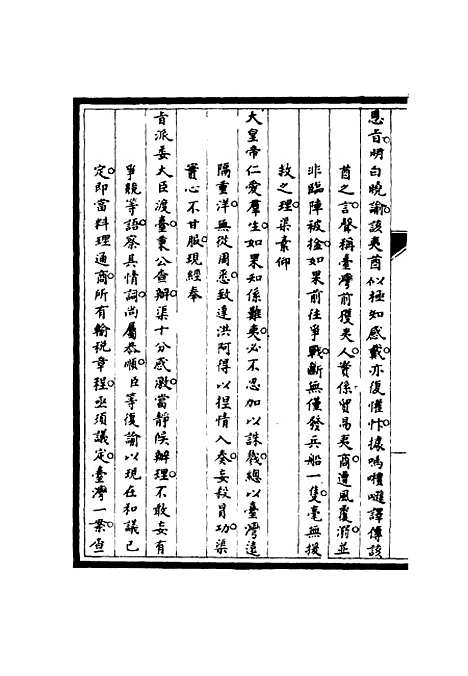 恩旨明白曉諭該夷酋似極知感戴亦復懼忭據嗎禮遜譯傳該
酋之言聲稱臺灣前獲夷人實係貿易夷商遭風覆溺並
非臨陣被擒如果前往爭戰斷無僅發兵船一隻毫無援
救之理渠素仰
大皇帝仁愛羣生如果知係難夷必不忍加以誅戮總以臺灣遠
隔重洋無從周悉致達洪阿得以捏情入奏妄殺冒功渠
實心不甘服現經奉
旨派委大臣渡臺秉公查辦渠十分感激當靜候辦理不敢妄有
爭競等語察其情詞尚屬恭順臣等復諭以現在和議已
定即當料理通商所有輸稅章程亟須議定臺灣一案查